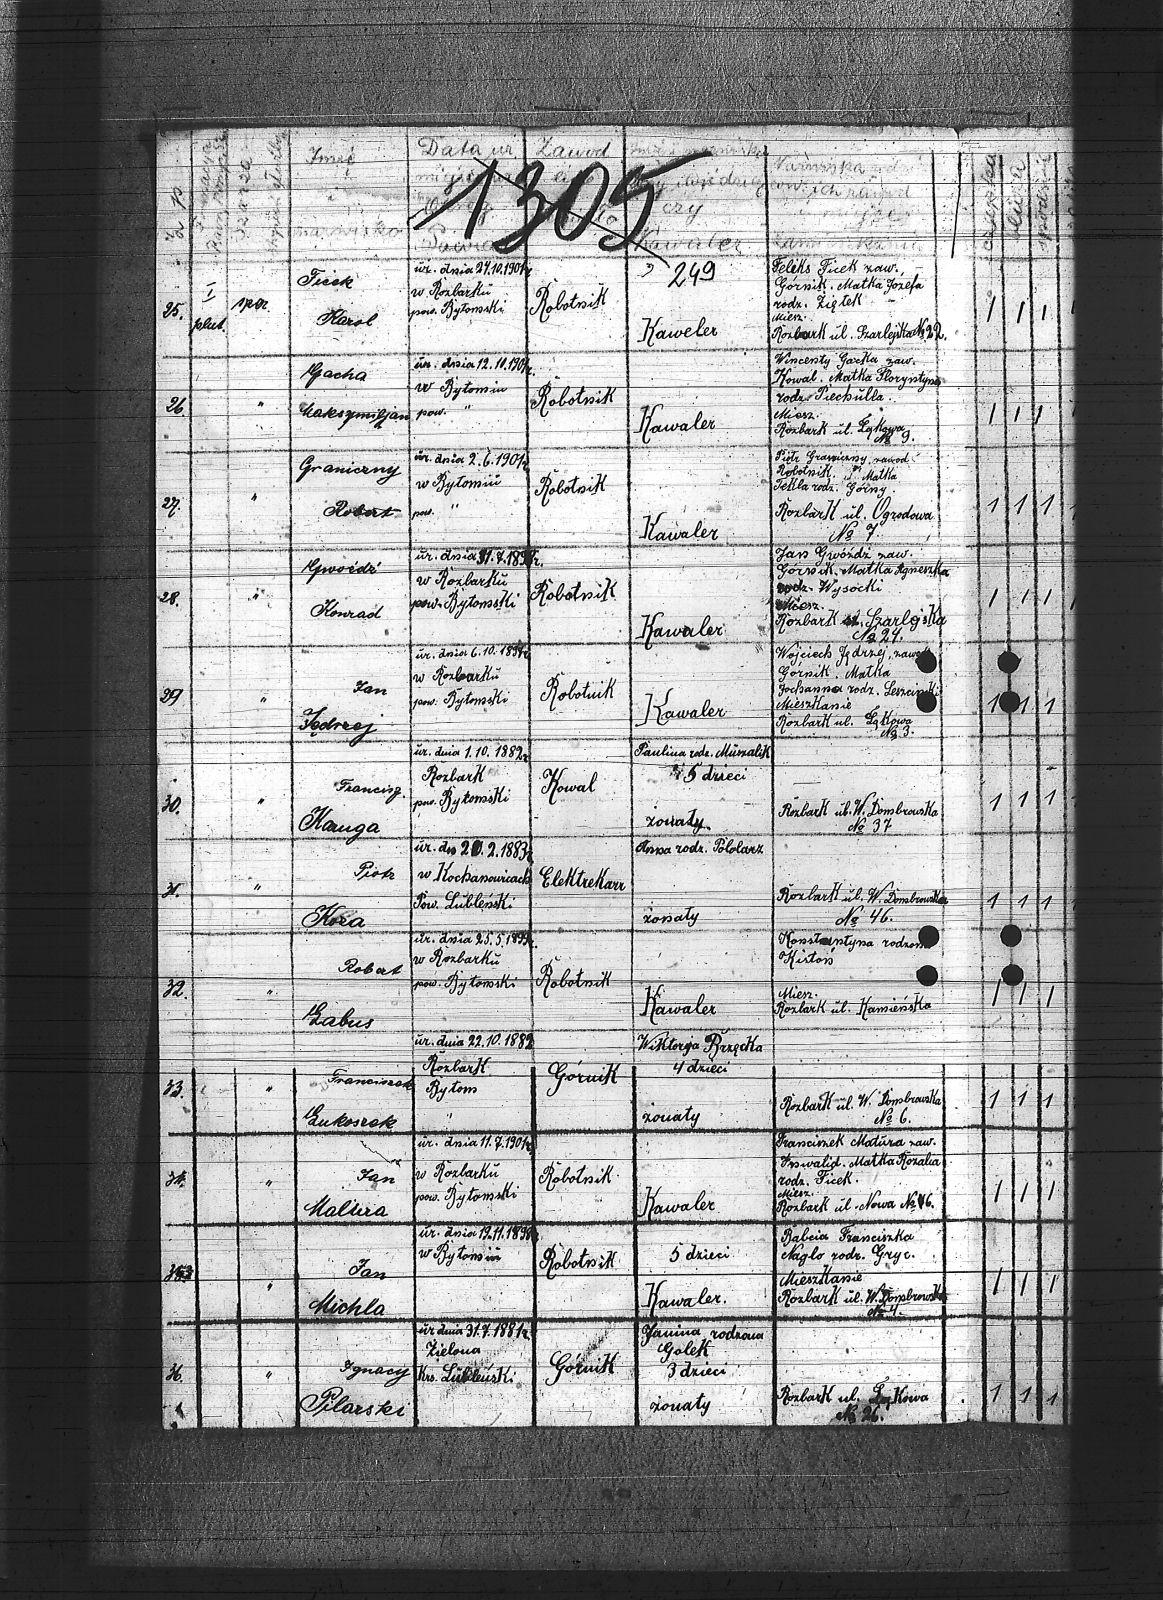 Imię
Data ur
Zawód
nazwisko
czy
Kawaler
1305
249
25.
I
plut.
szer.
Ficek
Karol
ur. dnia 27.10.1901r
w Rozbarku
pow. Bytomski
Robotnik
Kaweler
Feleks Ficek zaw.
Górnik. Matka Jozefa
rodz. Ziętek
Miesz.
Rozbark ul. Szarlejska № 22.
26.
"
Gacka
Maksymiljan
ur. dnia 12.10.1901r.
w Bytomiu
pow. "
Robotnik
Kawaler
Wincenty Gacka zaw.
Kowal. Matka Floryntyna
rodz. Piechulla.
Miesz.
Rozbark ul. Łąkowa
№ 9.
27.
"
Graniczny
Robert
ur. dnia 2.6.1901r
w Bytomiu
pow. "
Robotnik
Kawaler
Piotr Graniczny zawod
Robotnik. Matka
Tekla rodz. Górny.
Rozbark ul. Ogrodowa
№ 7
28.
"
Gwóźdź
Konrad
ur. dnia 31.7.1898r.
w Rozbarku
pow. Bytomski
Robotnik
Kawaler
Jan Gwóźdź zaw.
Górnik. Matka Agneszka
rodz. Wysocki
Miesz.
Rozbark ul. Szarlejska
№ 24.
29
"
Jan
Jędrzej
ur. dnia 6.10.1897r
w Rozbarku
pow. Bytomski
Robotnik
Kawaler
Wojciech Jędrzej, zawod
Górnik. Matka
Jochanna rodz. Leszcinski
Mieszkanie
Rozbark ul. Łąkowa
№ 3.
30.
"
Francisz.
Karuga
ur. dnia 1.10.1882r
Rozbark
pow. Bytomski
Kowal
Paulina rodz. Muszalik
5 dzieci
żonaty.
Rozbark ul. W. Dombrowska
№ 37
31.
"
Piotr
Koza
ur. dn 20.2.1883r
w Kochanowicach
Pow. Lubleński
Elektrekarz
Anna rodz. Pololarz
żonaty
Rozbark ul. W. Dombrowska
№ 46.
32.
"
Robert
Łabus
ur. dnia 25.5.1899r
w Rozbarku
pow. Bytomski
Robotnik
Kawaler
Konstantyna rodzona
Kistoń
Miesz.
Rozbark ul. Kamieńska
33.
"
Franciszek
Łukoszek
ur. dnia 22.10.1882
Rozbark
Bytom
"
Górnik
Wiktorja Brzęcka
4 dzieci
żonaty
Rozbark ul. W. Dombrowska
№ 6.
34.
"
Jan
Matura
ur. dnia 11.7.1901r
w Rozbarku
pow. Bytomski
Robotnik
Kawaler
Franciszek Matura zaw.
Inwalid. Matka Rozalia
rodz. Ficek.
Miesz.
Rozbark ul. Nowa № 16.
35
"
Jan
Michla
ur. dnia 19.11.1898r
w Bytomiu
Robotnik
5 dzieci
Kawaler.
Babcia Franciszka
Naglo rodz. Gryc.
Mieszkanie
Rozbark ul. W. Dombrowska
№ 4.
36.
"
Ignacy
Pilarski
ur dnia 31.7.1881r
Zielona
Krs. Lubleński
Górnik
Janina rodzona
Golek
3 dzieci
żonaty
Rozbark ul. Łąkowa
№ 26.